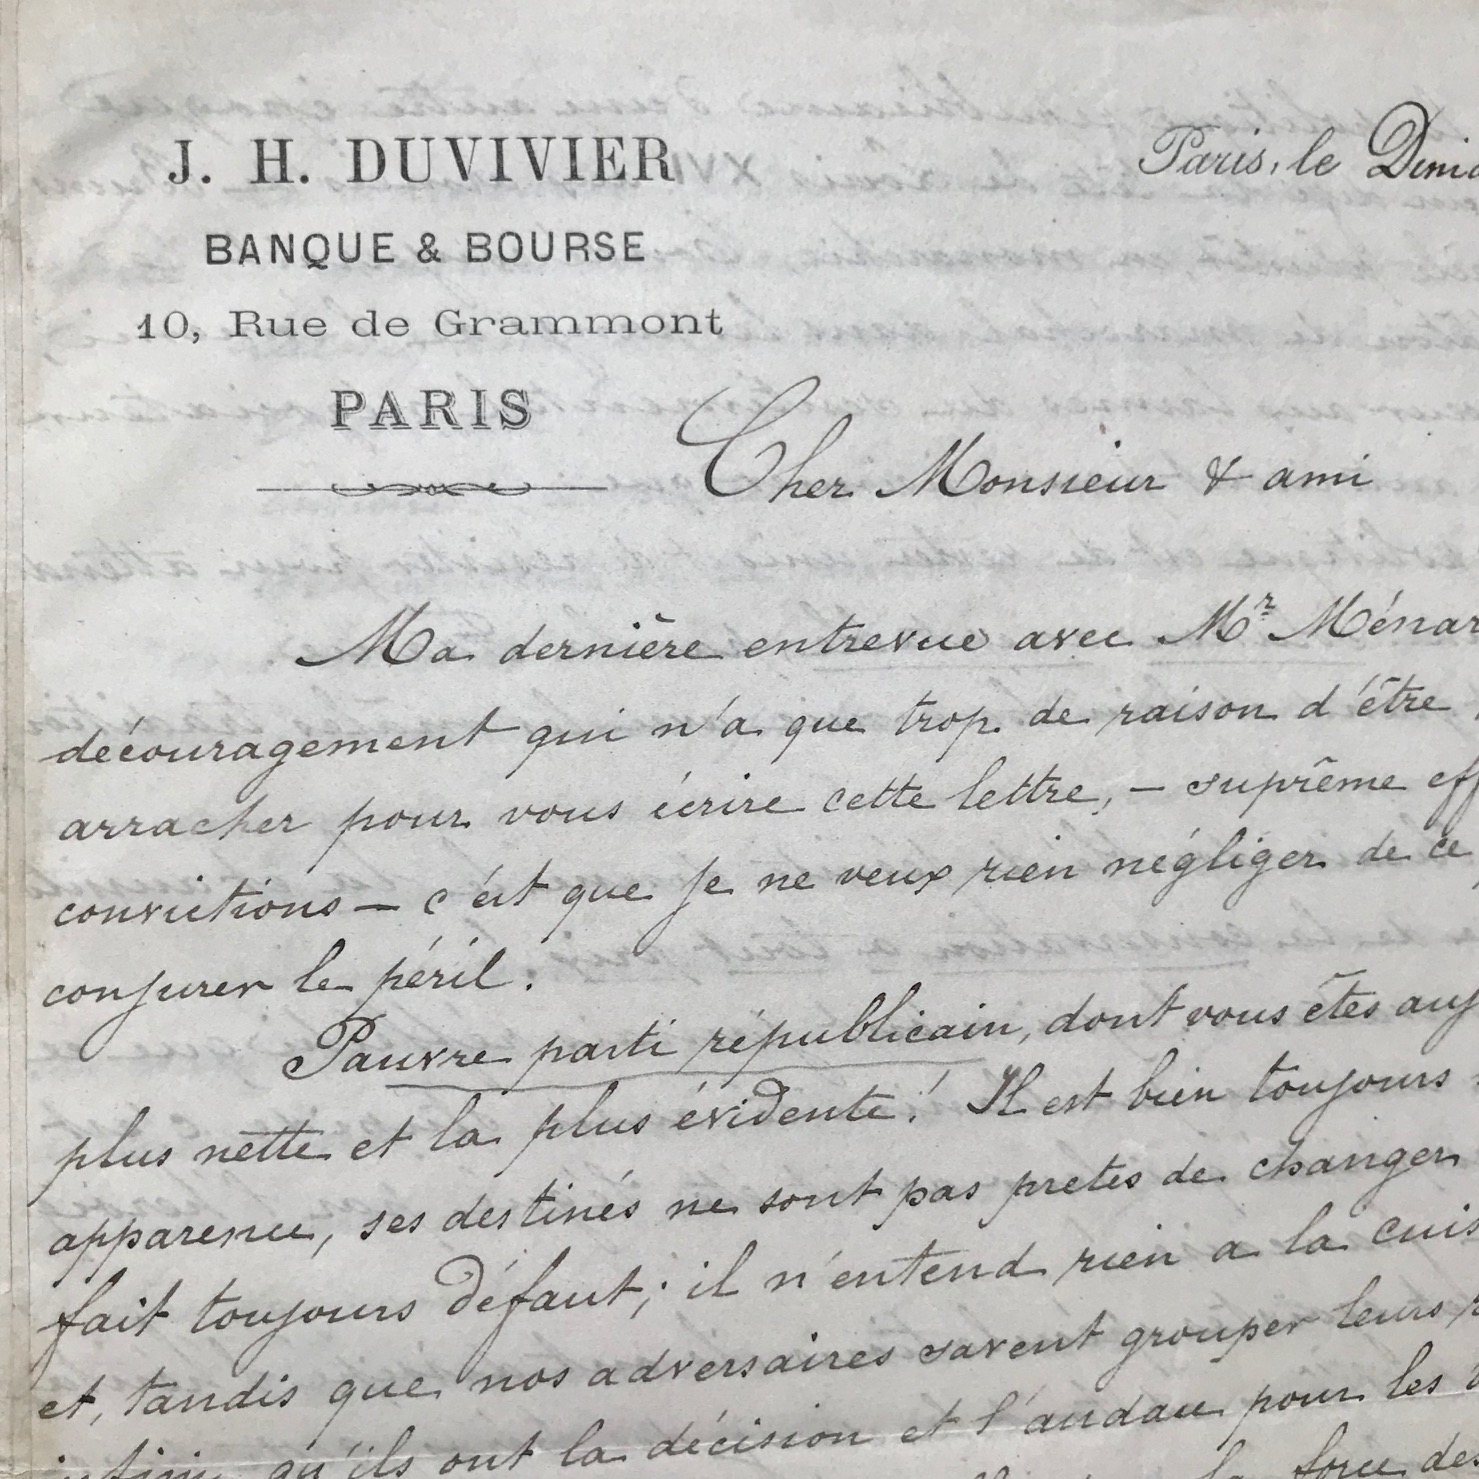 J. H. DUVIVIER
BANQUE & BOURSE
10, Rue de Grammont
PARIS
Paris, le
Cher Monsieur & ami
Ma dernière entrevue avec Mr Ménar
découragement qui n'a que trop de raison d'être
arracher pour vous écrire cette lettre, — suprême eff
convictions — c'est que je ne veux rien négliger de ce
conjurer le péril.
Pauvre parti républicain, dont vous êtes auj
plus nette et la plus évidente! Il est bien toujours
apparence, ses destinés ne sont pas pretes de changer
fait toujours défaut; il n'entend rien a la cuis
et, tandis que nos adversaires savent grouper leurs
qu'ils ont la décision et l'audace pour les
la force des